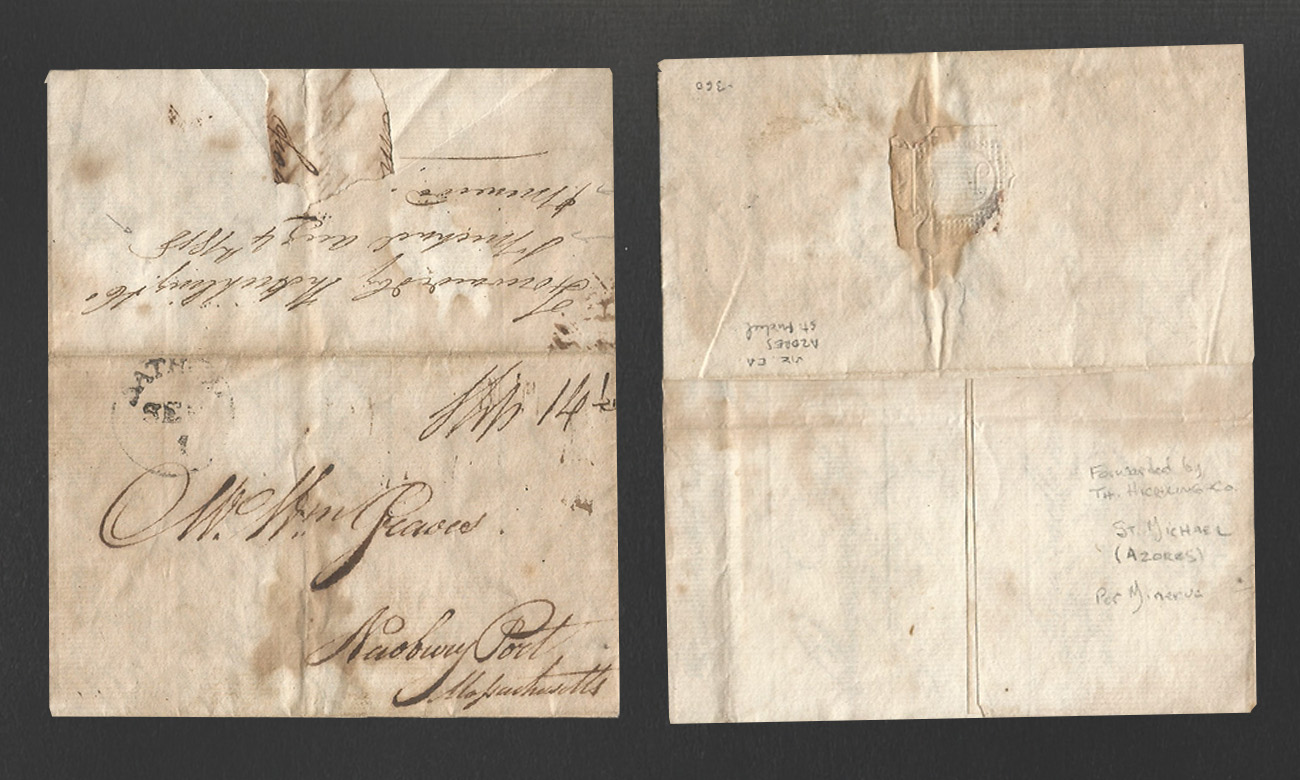 Forwarded by Th Hickling & Co.
St Michael Aug 4th 1818
Minerva
SE
1
Ship 14½
Mr. Wm Graves.
Newbury Port
Massachusetts
-360
VIZ. EA
AZORES
St. Michael
Forwarded by
TH. HICKLING CO.
ST. MICHAEL
(AZORES)
Per Minerva